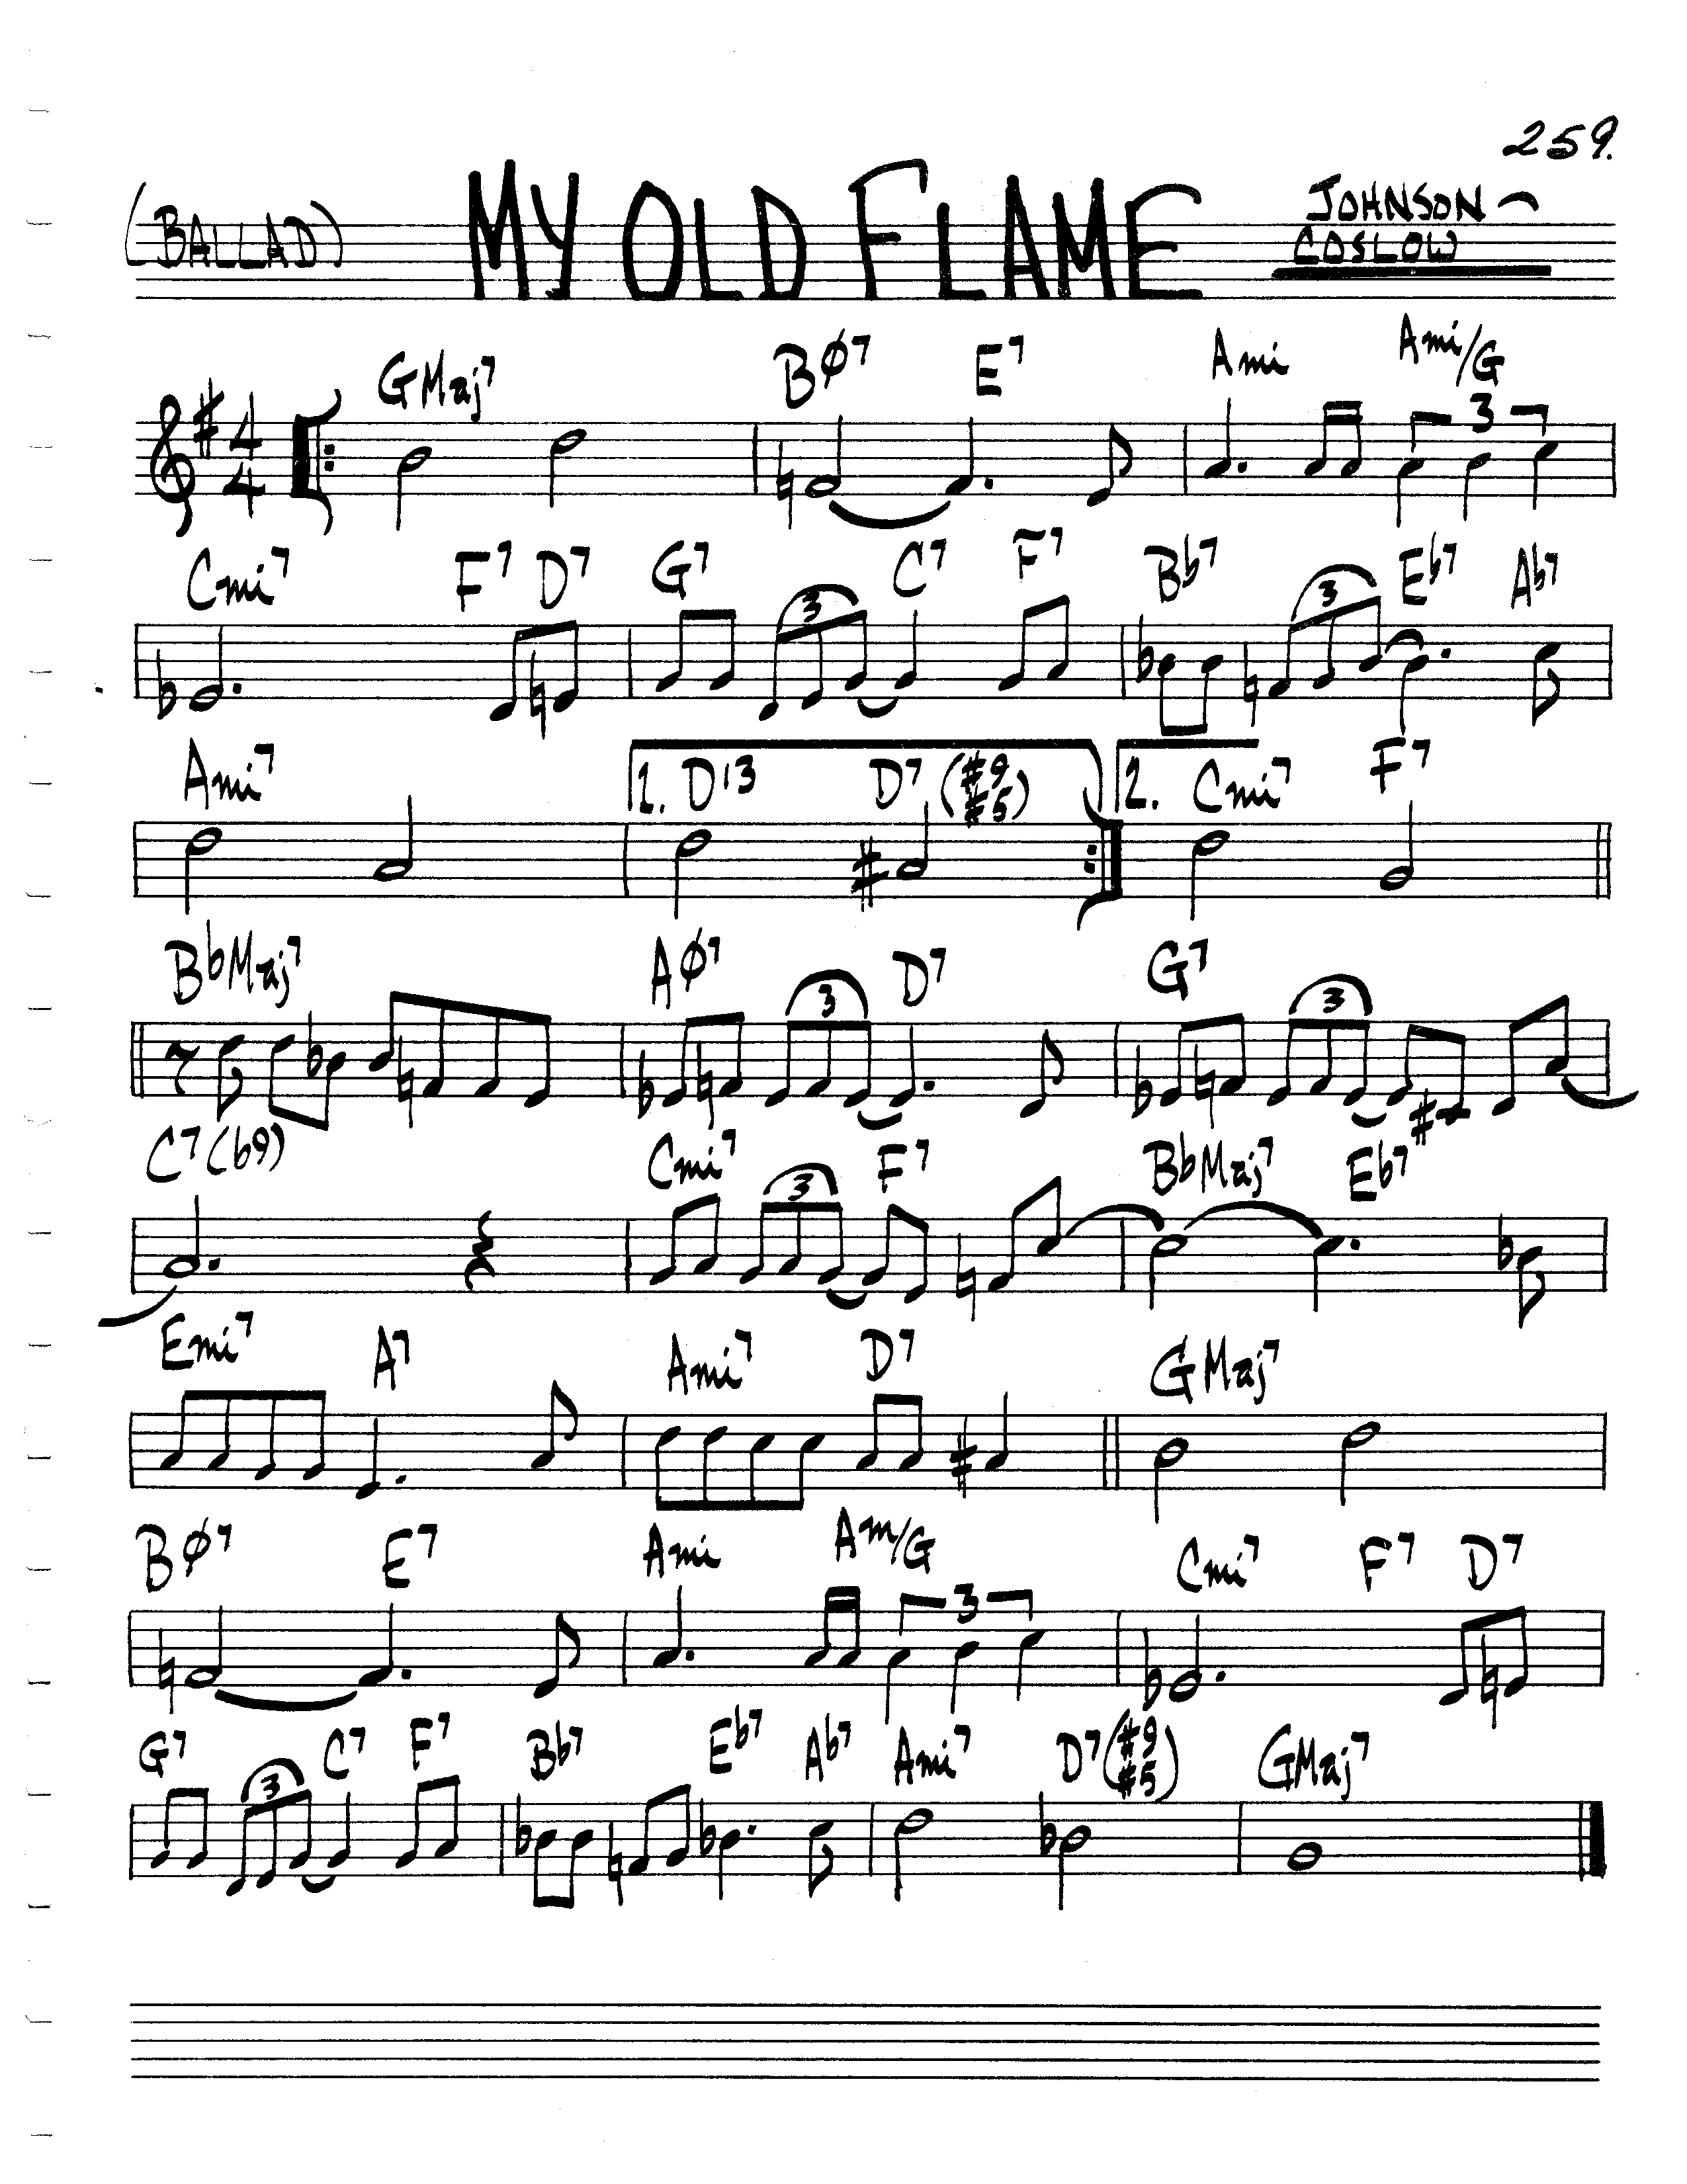 259.
(BALLAD) MY OLD FLAME JOHNSON –
COSLOW
GMaj7 Bø7 E7 Ami Ami/G
4 4 3
Cmi7 F7 D7 G7 C7 F7 Bb7 Eb7 Ab7
3 3
Ami7 1. D13 D7(#9 #5) 2. Cmi7 F7
BbMaj7 Aø7 D7 G7
3 3
C7(b9) Cmi7 F7 BbMaj7 Eb7
3
Emi7 A7 Ami7 D7 GMaj7
Bø7 E7 Ami Am/G Cmi7 F7 D7
3
G7 C7 F7 Bb7 Eb7 Ab7 Ami7 D7(#9 #5) GMaj7
3